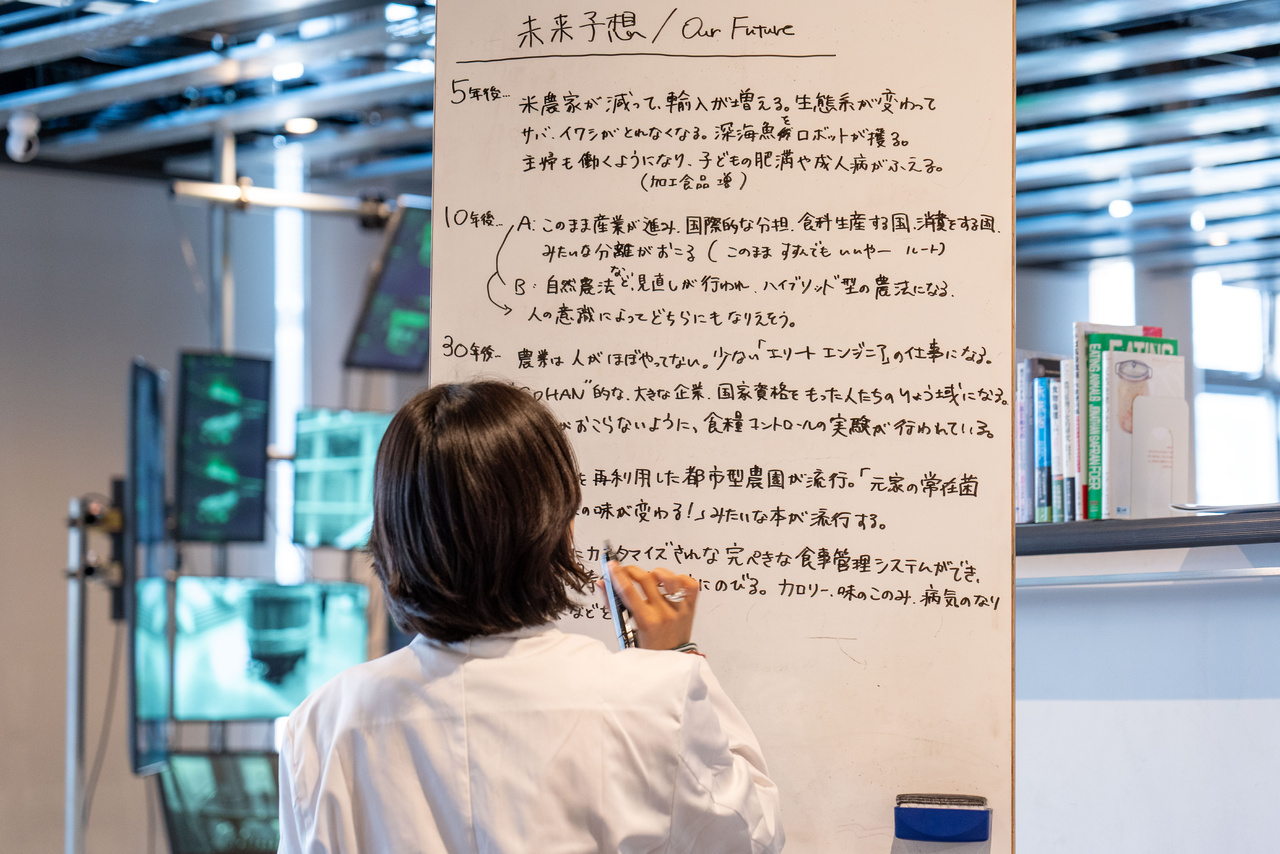 未来予想 / Our Future
5年後… 米農家が減って、輸入が増える。生態系が変わって
サバ、イワシがとれなくなる。深海魚をロボットが獲る。
主婦も働くようになり、子どもの肥満や成人病がふえる。
(加工食品増)
10年後… A: このまま産業が進み、国際的な分担、食料生産する国、消費をする国、
みたいな分離がおこる (このまますすんでもいいやー ルート)
B: 自然農法など、見直しが行われ、ハイブリッド型の農法になる。
→ 人の意識によってどちらにもなりえそう。
30年後… 農業は人がほぼやってない。少ない「エリートエンジニア」の仕事になる。
OHAN"的な、大きな企業、国家資格をもった人たちのりょう域になる。
がおこらないように、食糧コントロールの実験が行われている。
を再利用した都市型農園が流行。「元家の常在菌
の味が変わる!」みたいな本が流行する。
カスタマイズされた完ぺきな食事管理システムができ、
にのびる。カロリー、味のこのみ、病気のなり
などを
EATING
EATING ANIMALS JONATHAN SAFRAN FOER